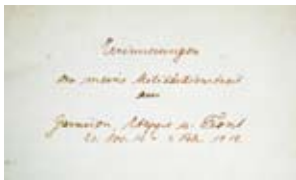 Erinnerungen
an meine Militärdienstzeit
aus
Garnison, Etappe u. Front